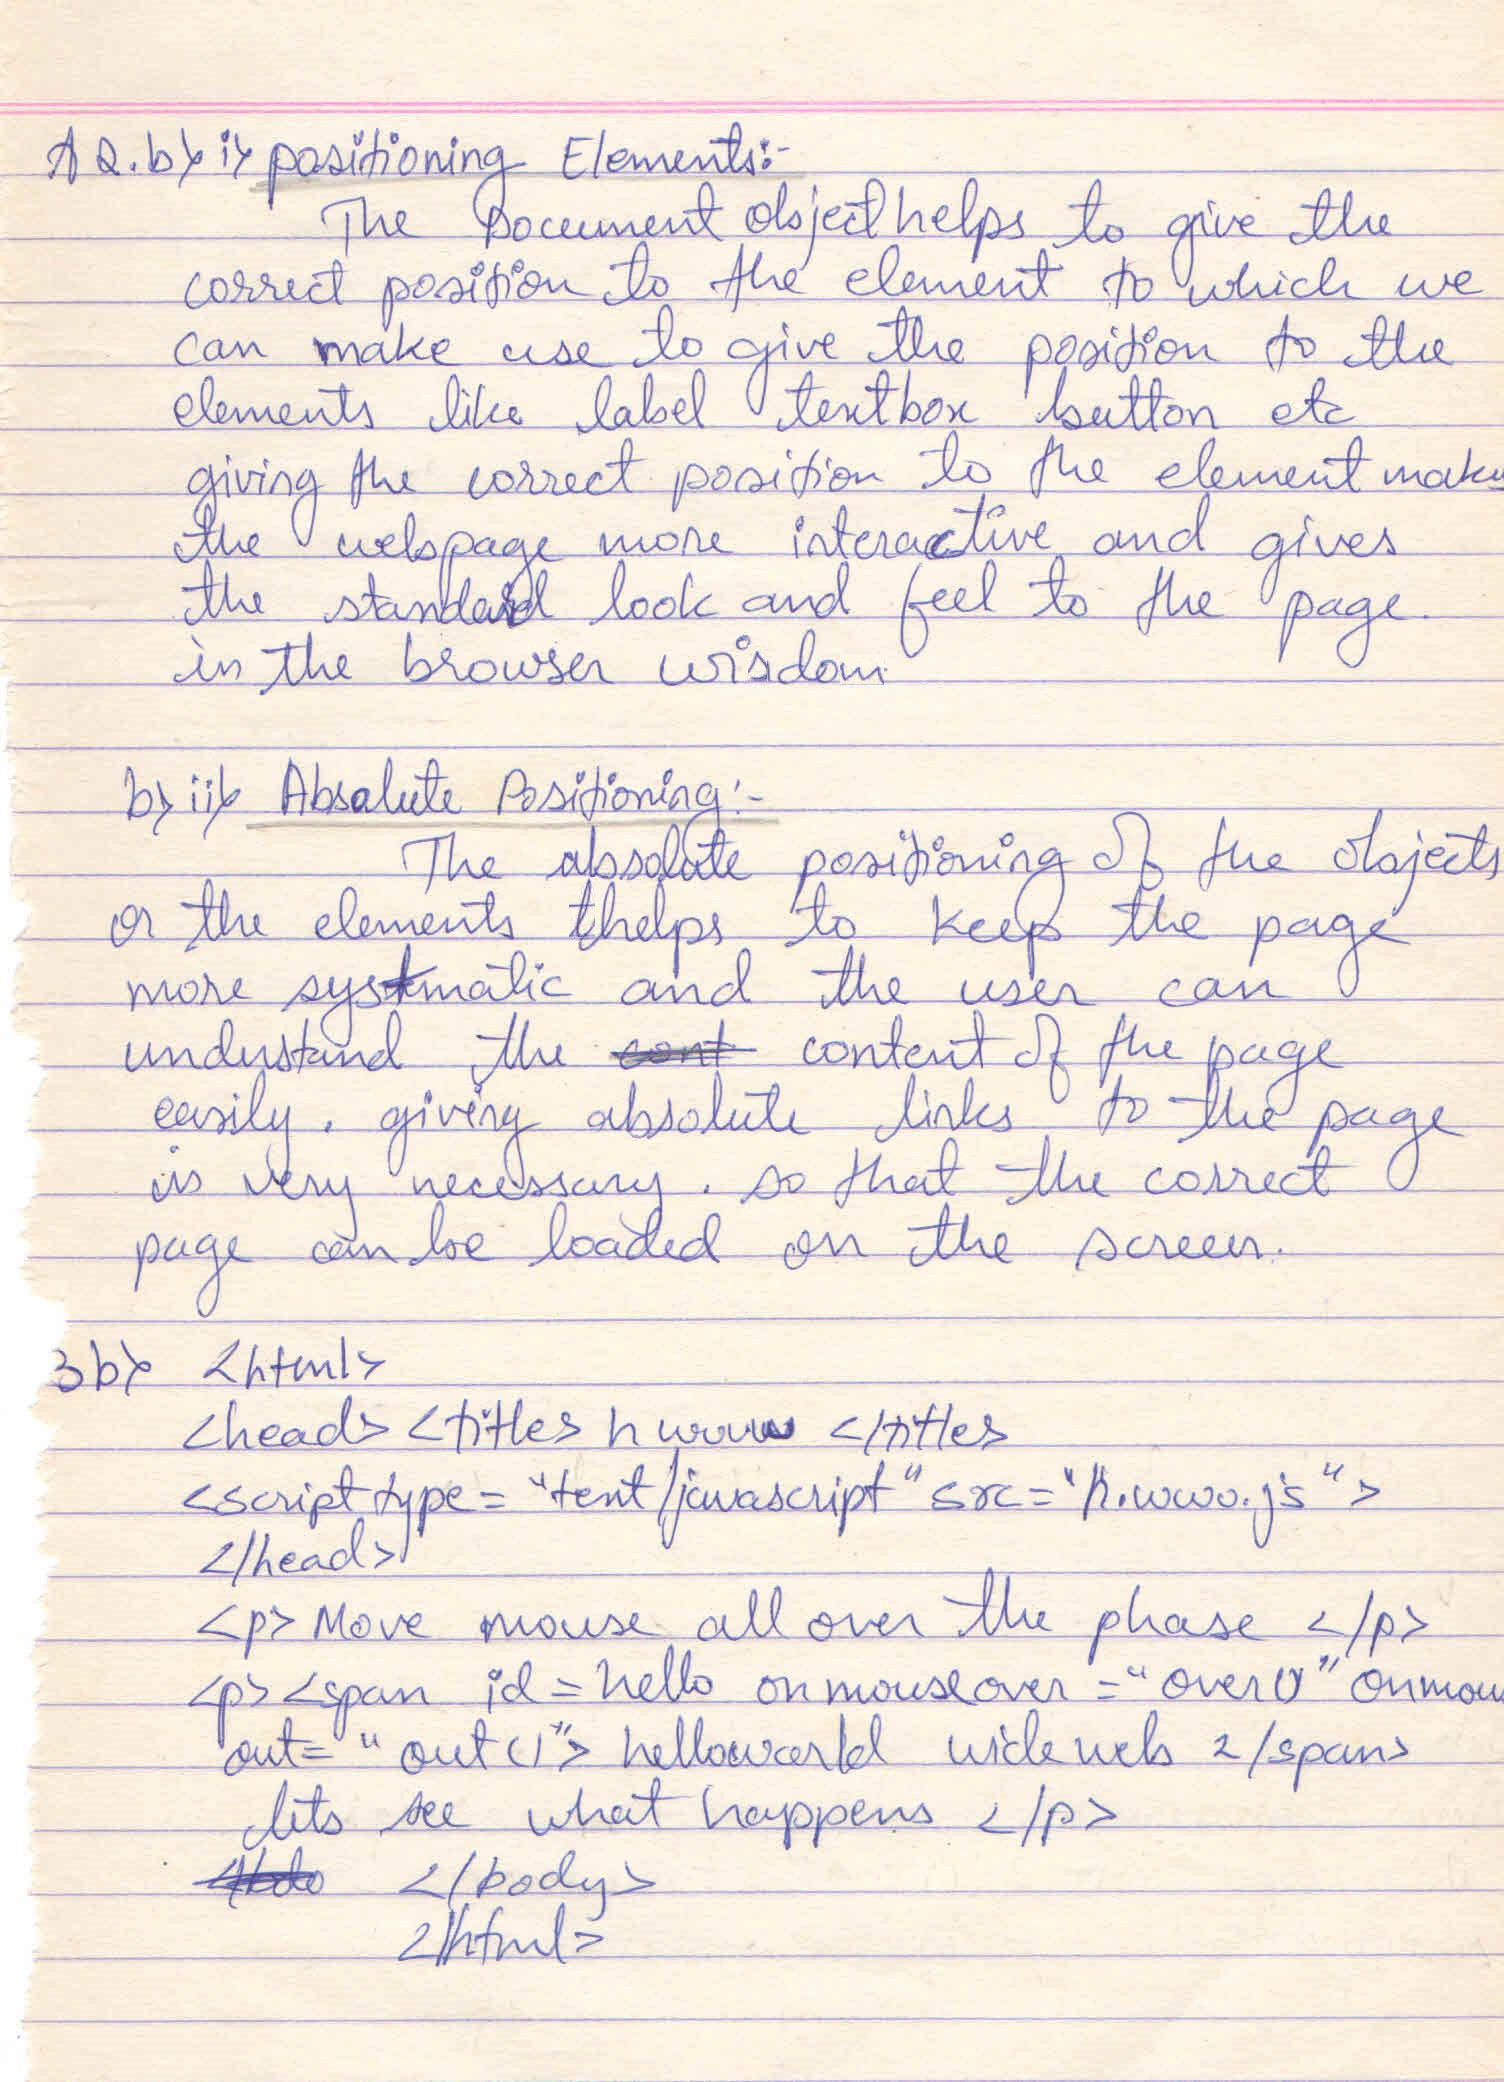 A 2. b) i) positioning Elements:-
The Document object helps to give the
correct position to the element to which we
can make use to give the position to the
elements like label textbox button etc
giving the correct position to the element makes
the webpage more interactive and gives
the standard look and feel to the page.
in the browser wisdom.
b) ii) Absolute Positioning:-
The absolute positioning of the objects
or the elements thelps to keep the page
more systmatic and the user can
understand the content of the page
easily. giving absolute links to the page
is very necessary. so that the correct
page can be loaded on the screen.
3b) <html>
<head> <title> h www </title>
<script type = "text/javascript" src = "h.www.js">
</head>
<p> Move mouse all over the phase </p>
<p> <span id = hello onmouseover = "over()" onmou
out= "out()"> helloworld wide web </span>
lets see what happens </p>
</body>
</html>